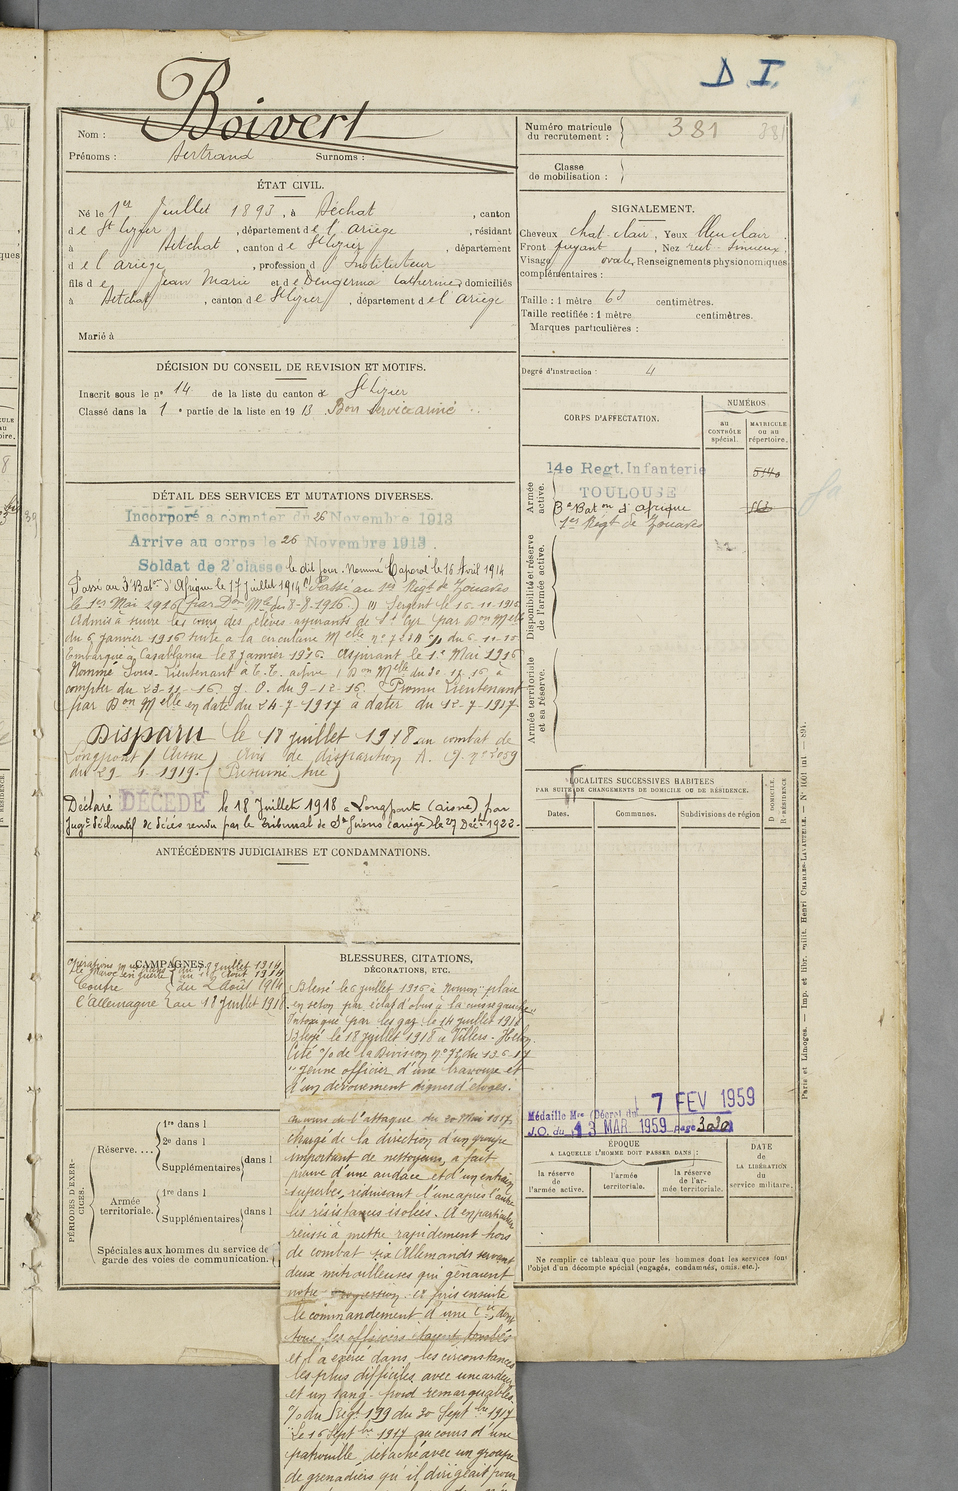 D I.
Boivert
Nom :
Prénoms : Bertrand Surnoms :
Numéro matricule du recrutement : 381 381
Classe de mobilisation :
ÉTAT CIVIL.
Né le 1er Juillet 1893, à Betchat, canton
de St lizier, département de l'ariège, résidant
à Betchat, canton de St lizier, département
de l'ariège, profession d' Instituteur
fils de Jean Marie et de Dengerma Catherine domiciliés
à Betchat, canton de St lizier, département de l'ariège
Marié à
SIGNALEMENT.
Cheveux chat. clair, Yeux bleu clair
Front fuyant, Nez rect. sinueux
Visage ovale, Renseignements physionomiques
complémentaires :
Taille : 1 mètre 63 centimètres.
Taille rectifiée : 1 mètre centimètres.
Marques particulières :
Degré d'instruction : 4
DÉCISION DU CONSEIL DE REVISION ET MOTIFS.
Inscrit sous le no 14 de la liste du canton de St lizier
Classé dans la 1e partie de la liste en 1913 Bon service armé
CORPS D'AFFECTATION.
NUMÉROS
AU CONTRÔLE spécial.
MATRICULE ou au répertoire.
Armée active.
14e Regt. Infanterie
TOULOUSE
3e Baton d'afrique
1er Régt de Zouaves
Disponibilité et réserve de l'armée active.
Armée territoriale et sa réserve.
DÉTAIL DES SERVICES ET MUTATIONS DIVERSES.
Incorporé a compter du 26 Novembre 1913
Arrive au corps le 26 Novembre 1913.
Soldat de 2e classe le dit jour. Nommé Caporal le 18 Avril 1914
Passé au 3e Baton d'Afrique le 17 Juillet 1914. Passé au 1er Régt de Zouaves
le 1er Mai 1916 (par Don Mlle du 8-8-1916.) Sergent le 15-11-1914
Admis à suivre les cours des élèves aspirants de St Cyr par Don Melle
du 6 janvier 1916 suite a la circulaire Melle
Embarqué à Casablanca le 8 janvier 1916. Aspirant le 1er Mai 1916
Nommé Sous-Lieutenant à T.T. active (Don Melle du 30-11-16, à
compter du 23-11-16. J.O. du 9-12-16. Promu Lieutenant
par Don Melle en date du 24-7-1917 à dater du 12-7-1917
Disparu le 18 juillet 1918 au combat de
Longpont (Aisne) Avis de disparition
du 29-1-1919. (Présumé tué)
Déclaré DÉCÉDÉ le 18 Juillet 1918 à Longpont (aisne) par
Jugt déclaratif de décès rendu par le tribunal de St Girons (ariège) le 27 Décbre 1922.
ANTÉCÉDENTS JUDICIAIRES ET CONDAMNATIONS.
LOCALITÉS SUCCESSIVES HABITÉES
PAR SUITE DE CHANGEMENTS DE DOMICILE OU DE RÉSIDENCE.
Dates. Communes. Subdivisions de région
D DOMICILE. R RÉSIDENCE
CAMPAGNES
Contre du 2 Août 1914
l'Allemagne au 18 Juillet 1918
BLESSURES, CITATIONS,
DÉCORATIONS, ETC.
Blessé le 6 juillet 1916 à plaie
en seton par éclat d'obus à la cuisse gauche
Intoxiqué par les gaz le 14 juillet 1918
Blessé le 18 juillet 1918 à Villers-Hélon.
Cité % de la Division
"Jeune officier d'une bravoure et
d'un dévouement dignes d'éloges.
au cours de l'attaque du 20 Mai 1917,
chargé de la direction d'un groupe
important de nettoyeurs, a fait
preuve d'une audace et d'un entrain
superbes, réduisant l'une après l'autre
les résistances isolées. A en particulier
réussi à mettre rapidement hors
de combat six Allemands servant
deux mitrailleuses qui gênaient
notre progression. A pris ensuite
le commandement d'une Cie, dont
tous les officiers étaient tombés
et l'a exercé dans les circonstances
les plus difficiles avec une ardeur
et un sang-froid remarquables.
% du Régt 199 du 30 Septbre 1917
"Le 16 Septbre 1917 au cours d'une
patrouille, détaché avec un groupe
de grenadiers qu'il dirigeait pour
Médaille Mre (Décret du 7 FEV 1959
J.O. du 13 MAR 1959 page 3030
PÉRIODES D'EXERCICES.
Réserve....
1re dans l
2e dans l
Supplémentaires dans l
Armée territoriale.
1re dans l
Supplémentaires dans l
Spéciales aux hommes du service de
garde des voies de communication.
ÉPOQUE
A LAQUELLE L'HOMME DOIT PASSER DANS :
la réserve de l'armée active.
l'armée territoriale.
la réserve de l'armée territoriale.
DATE de LA LIBÉRATION du service militaire.
Ne remplir ce tableau que pour les hommes dont les services font
l'objet d'un décompte spécial (engagés, condamnés, omis. etc.).
Paris et Limoges. — Imp. et libr. milit. Henri CHARLES-LAVAUZELLE.